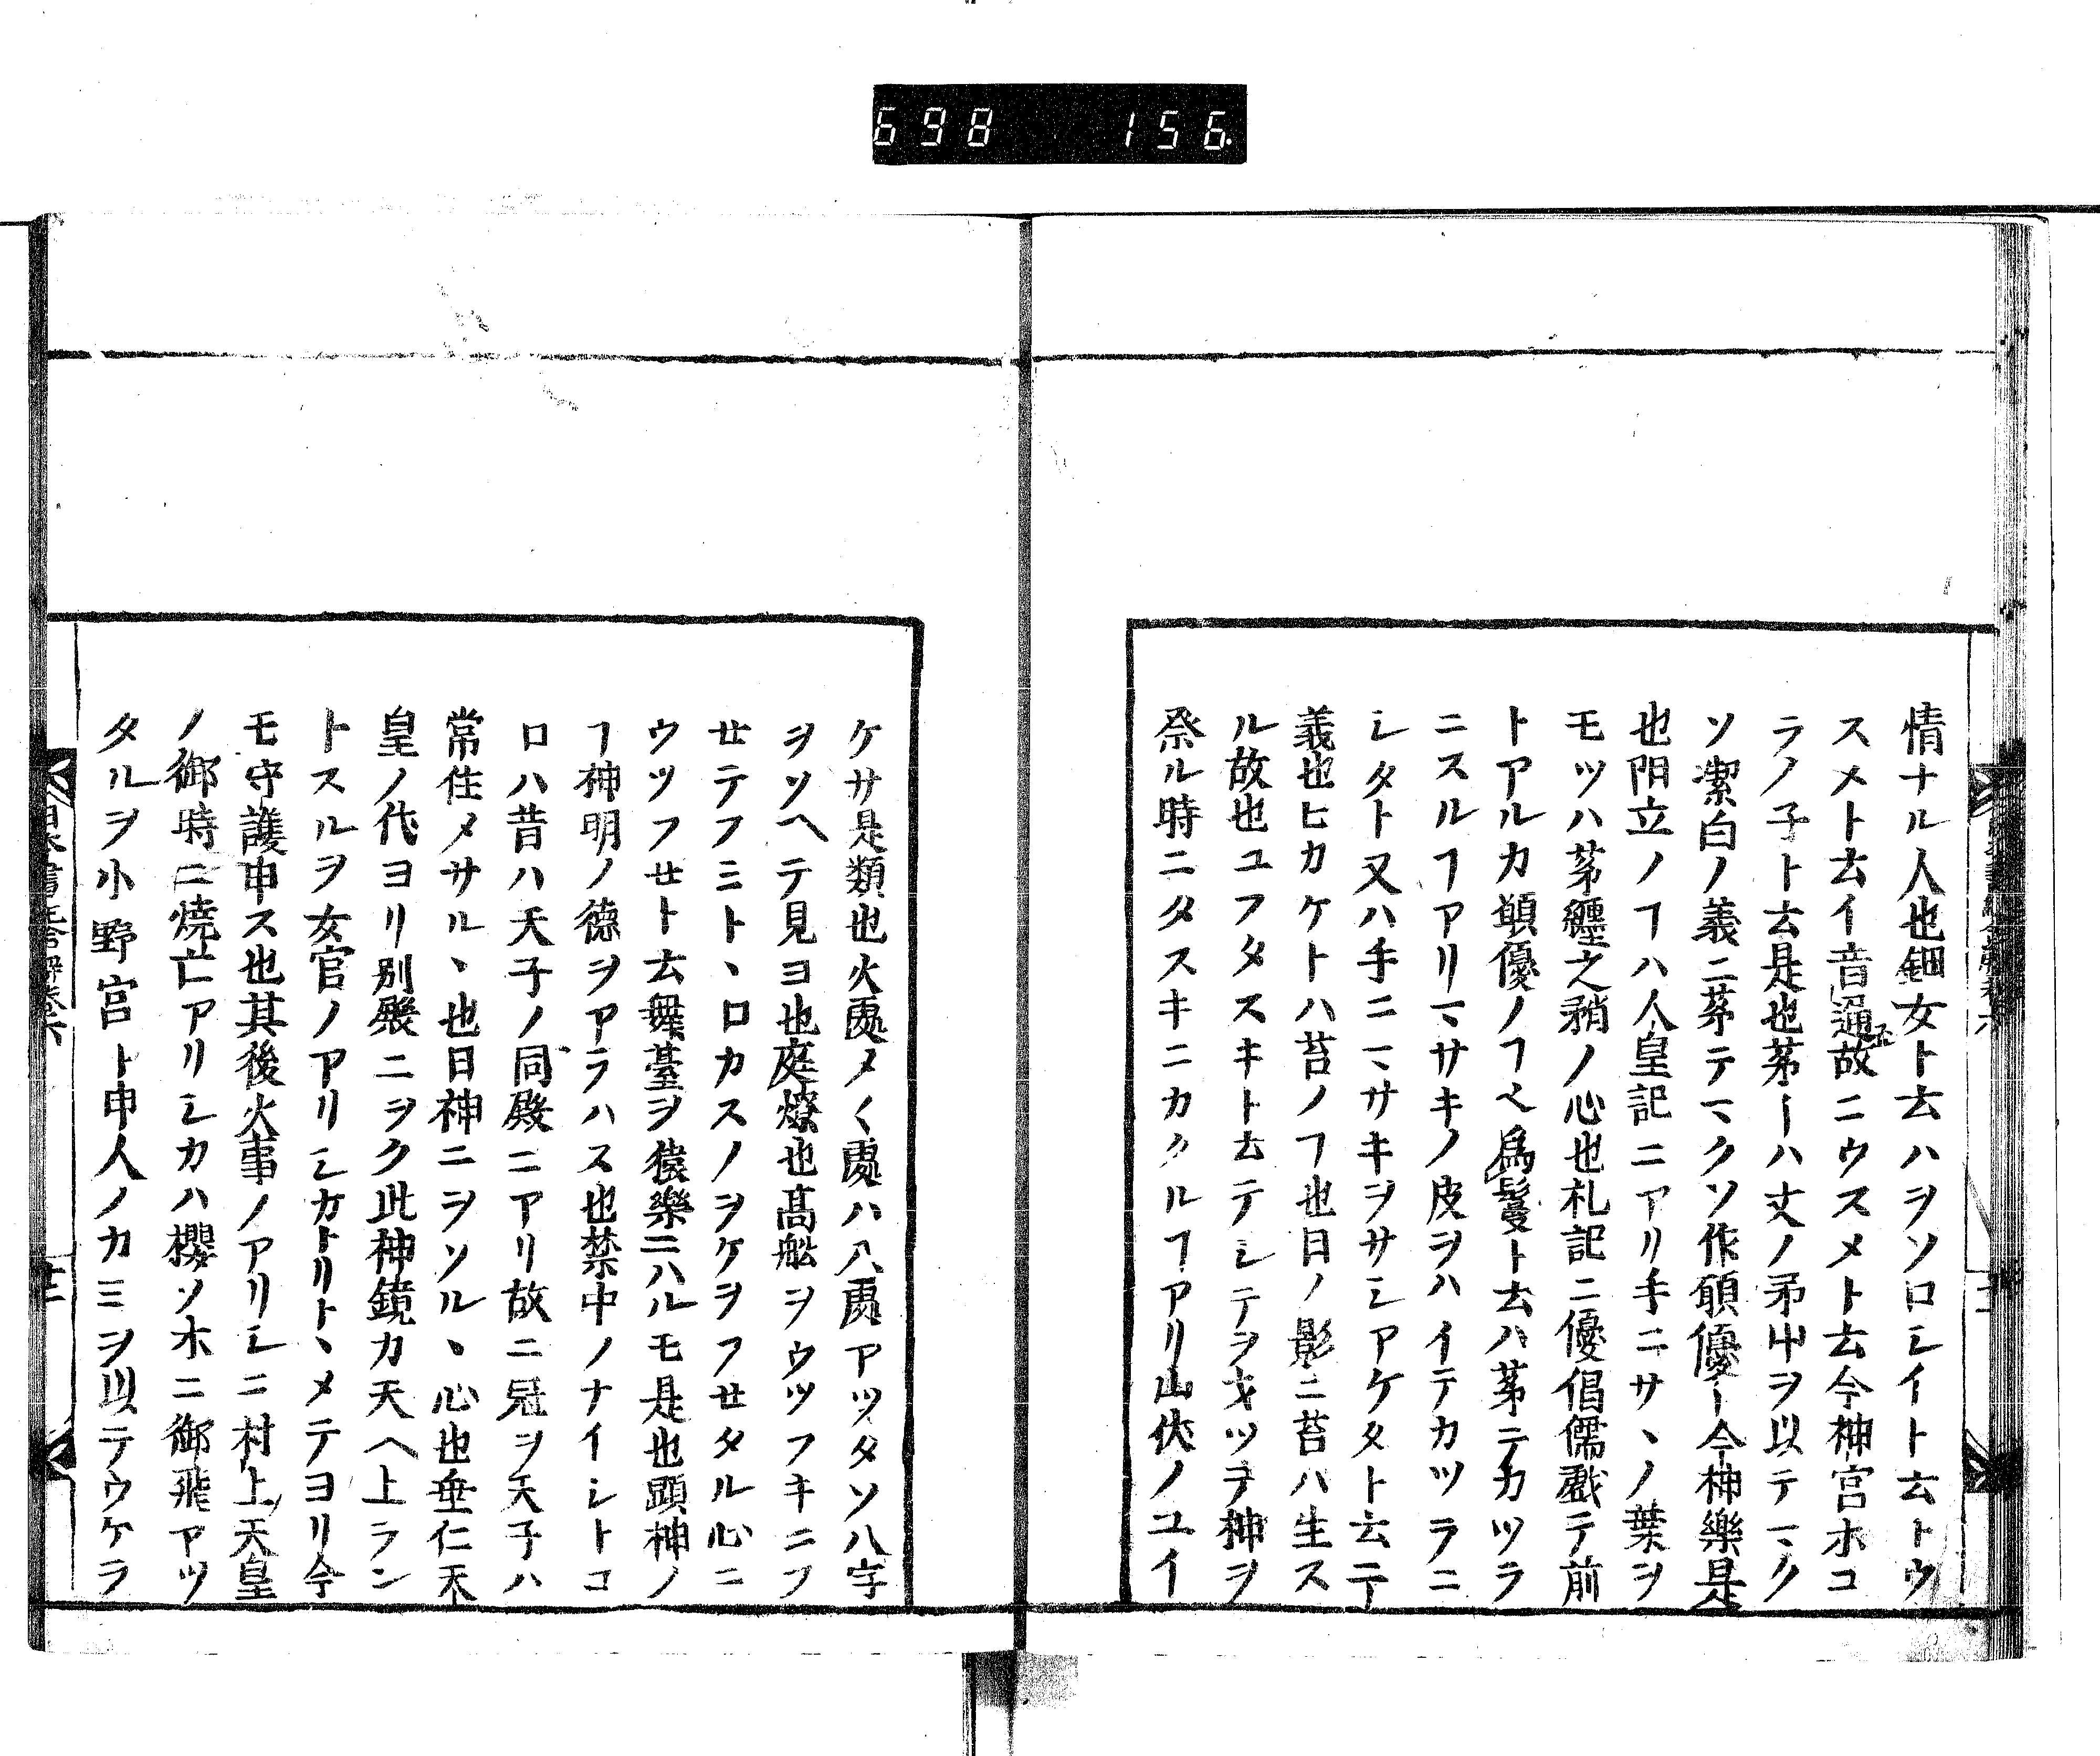 698 156
情ナル人也鈿女ト云ハヲソロシイト云トウ
スメト云イ音通故ニウスメト云今神宮ホコ
ラノ子ト云是也茅ーハ丈ノ矛中ヲ以テマク
ソ潔白ノ義ニ茅テマクソ作頓優ー今神樂是
也阴立ノヿハ人皇記ニアリ手ニサヽノ葉ヲ
モツハ茅纏之矟ノ心也礼記ニ優倡儒戯テ前
トアルカ顗優ノヿヘ爲鬘ト云ハ茅ニテカツラ
ニスルヿアリマサキノ皮ヲハイテカツラニ
シタト又ハ手ニマサキヲサシアケタト云テ
義也ヒカケトハ苔ノヿ也日ノ影ニ苔ハ生ス
ル故也ユフタスキト云テシテヲ戈ツヲ神ヲ
祭ル時ニタスキニカクルヿアリ山伏ノユイ
ケサ是類也火處メく處ハ八處アツタソ八字
ヲソヘテ見ヨ也庭燎也髙舩ヲウツフキニフ
せテフミトヽロカスノヲケヲフせタル心ニ
ウツフせト云舞臺ヲ猿樂ニハルモ是也顕神ノ
ヿ神明ノ德ヲアラハス也禁中ノナイシトコ
ロハ昔ハ天子ノ同殿ニアリ故ニ冠ヲ天子ハ
常住メサルヽ也日神ニヲソルヽ心也垂仁天
皇ノ代ヨリ別殿ニヲク此神鏡カ天ヘ上ラン
トスルヲ女官ノアリシカトリトヽメテヨリ今
モ守護申ス也其後火事ノアリシニ村上天皇
ノ御時ニ焼亡アリシカハ櫻ソ木ニ御飛アツ
タルヲ小野宮ト申人ノカミヲ以テウケラ